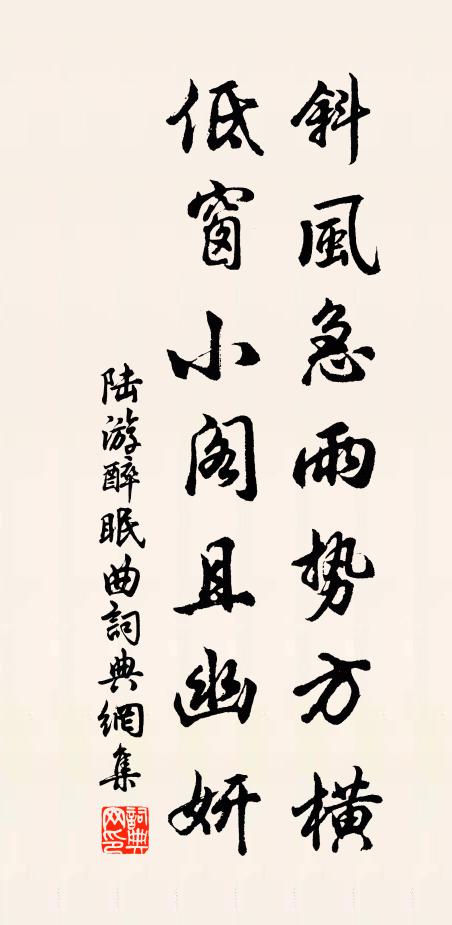 斜風急雨勢方橫
低窗小閣且幽妍
陆游醉眠曲詞典網集
詞典网印